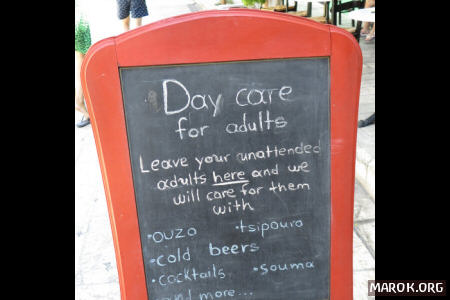 Day care
for adults
Leave your unattended
adults here and we
will care for them
with
•ouzo •tsipouro
•cold beers
•cocktails •souma
and more...
MAROK.ORG